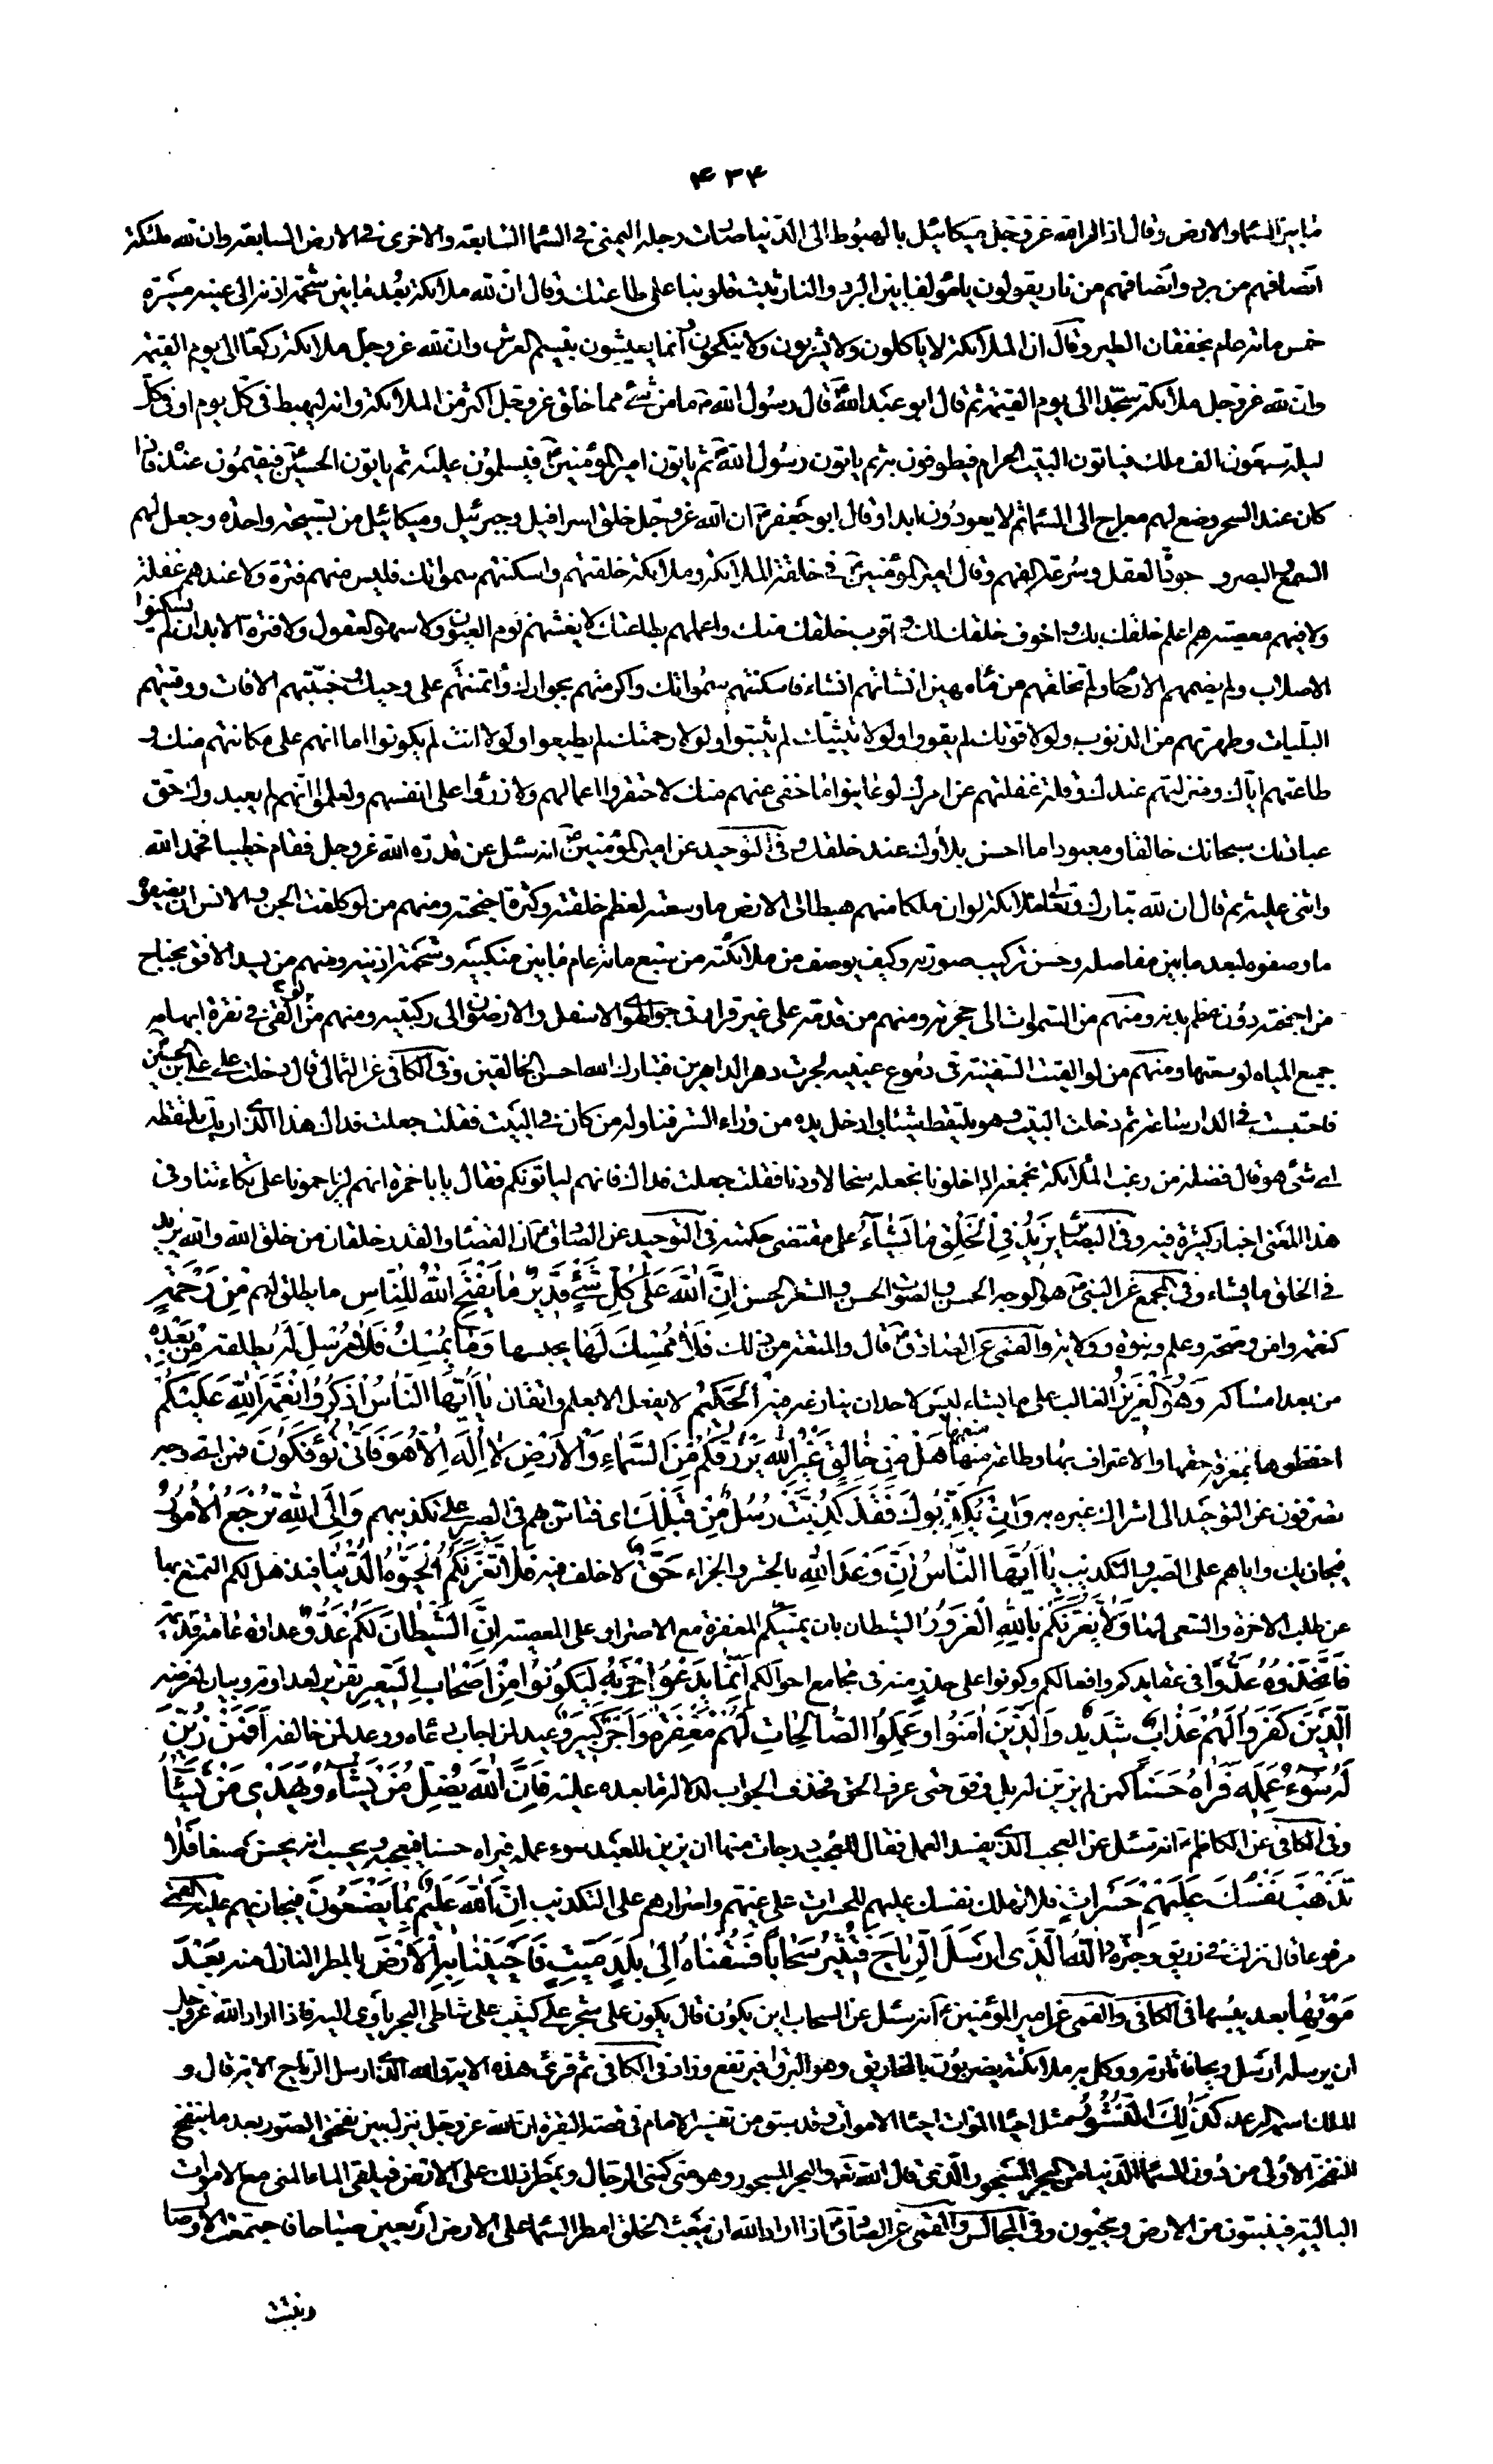 ۴۳۴
ما بين السماء والارض وقال اذا امر الله عز وجل ميكائيل بالهبوط الى الدنيا صارت رجله اليمنى في السماء السابعة والاخرى في الارض السابعة وان لله ملئكة
انصافهم من برد وانصافهم من نار يقولون يا مؤلفا بين البرد والنار ثبت قلوبنا على طاعتك وقال ان لله ملائكة بعد ما بين شحمة اذنه الى عينيه مسيرة
خمس مائة عام بخفقان الطير وقال ان الملائكة لا ياكلون ولا يشربون ولا ينكحون وانما يعيشون بنسيم العرش وان لله عز وجل ملائكة ركعا الى يوم القيمة
وان لله عز وجل ملائكة سجدا الى يوم القيمة ثم قال ابو عبد الله ع قال رسول الله ص ما من شئ مما خلق عز وجل اكثر من الملائكة وانه ليهبط في كل يوم او في كل
ليلة سبعون الف ملك فياتون البيت الحرام فيطوفون به ثم ياتون رسول الله ص ثم ياتون امير المؤمنين ع فيسلمون عليه ثم ياتون الحسين ع فيقيمون عنده فاذا
كان عند السحر وضع لهم معراج الى السماء ثم لا يعودون ابدا وقال ابو جعفر ع ان الله عز وجل خلق اسرافيل وجبرئيل وميكائيل من تسبيحة واحدة وجعل لهم
السمع والبصر و جودة العقل وسرعة الفهم وقال امير المؤمنين ع في خلقة الملائكة وملائكة خلقتهم واسكنتهم سمواتك فليس منهم فترة ولا عندهم غفلة
ولا فيهم معصية هم اعلم خلقك بك واخوف خلقك لك واقرب خلقك منك واعملهم بطاعتك لا يغشيهم نوم العيون ولا سهو العقول ولا فترة الابدان لم يسكنوا
الاصلاب ولم يضمهم الارحام ولم تخلقهم من ماء مهين انشاتهم انشاء فاسكنتهم سمواتك واكرمتهم بجوارك وائتمنتهم على وحيك وجنبتهم الافات ووقيتهم
البليات وطهرتهم من الذنوب ولولا قوتك لم يقووا ولولا تثبيتك لم يثبتوا ولولا رحمتك لم يطيعوا ولولا انت لم يكونوا اما انهم على مكانتهم منك و
طاعتهم اياك ومنزلتهم عندك وقلة غفلتهم عن امرك لو عاينوا ما خفي عنهم منك لاحتقروا اعمالهم ولازرؤا على انفسهم ولعلموا انهم لم يعبدوك حق
عبادتك سبحانك خالقا ومعبودا ما احسن بلاءك عند خلقك وفي التوحيد عن امير المؤمنين ع انه سئل عن قدرة الله عز وجل فقام خطيبا فحمد الله
واثنى عليه ثم قال ان لله تبارك وتعالى ملائكة لو ان ملكا منهم هبط الى الارض ما وسعته لعظم خلقته وكثرة اجنحته ومنهم من لو كلفت الجن والانس ان يصفوه
ما وصفوه لبعد ما بين مفاصله وحسن تركيب صورته وكيف يوصف من ملائكته من سبع مائة عام ما بين منكبيه وشحمة اذنيه ومنهم من يسد الافق بجناح
من اجنحته دون عظم بدنه ومنهم من السموات الى حجزته ومنهم من قدمه على غير قرار في جو الهواء الاسفل والارضون الى ركبتيه ومنهم من لو القي في نقرة ابهامه
جميع المياه لوسعتها ومنهم من لو القيت السفينة في دموع عينيه لجرت دهر الداهرين فتبارك الله احسن الخالقين وفي الكافي عن الثمالي قال دخلت على علي بن الحسين
فاحتبست في الدار ساعة ثم دخلت البيت وهو يلتقط شيئا وادخل يده من وراء الستر فناوله من كان في البيت فقلت جعلت فداك هذا الذي اريك تلتقطه
اي شئ هو قال فضلة من زغب الملائكة نجمعه اذا خلونا نجعله سخا لاودنا فقلت جعلت فداك فانهم لياتونكم فقال يا با حمزة انهم ليزاحمونا على تكاءتنا وفي
هذا المعنى اخبار كثيرة فيه وفي البصائر يَزِيدُ فِي الْخَلْقِ مَا يَشَاءُ على مقتضى حكمته في التوحيد عن الصادق ع ان القضاء والقدر خلقان من خلق الله والله يزيد
في الخلق ما يشاء وفي المجمع عن النبي ص هو الوجه الحسن والصوت الحسن والشعر الحسن اِنَّ اللّٰهَ عَلٰى كُلِّ شَيْءٍ قَدِيرٌ مَا يَفْتَحِ اللّٰهُ لِلنَّاسِ ما يطلق لهم مِنْ رَحْمَةٍ
كنعمة وامن وصحة وعلم ونبوة وولاية والقمي عن الصادق ع قال والمتعة من ذلك فَلَا مُمْسِكَ لَهَا يحبسها وَمَا يُمْسِكْ فَلَا مُرْسِلَ لَهُ يطلقه مِنْ بَعْدِهِ
من بعد امساكه وَهُوَ الْعَزِيزُ الغالب على ما يشاء ليس لاحد ان ينازعه فيه الْحَكِيمُ لا يفعل الا بعلم واتقان يَا اَيُّهَا النَّاسُ اذْكُرُوا نِعْمَةَ اللّٰهِ عَلَيْكُمْ
احفظوها بمعرفة حقها والاعتراف بها وطاعة منعمها هَلْ مِنْ خَالِقٍ غَيْرُ اللّٰهِ يَرْزُقُكُمْ مِنَ السَّمَاءِ وَالْاَرْضِ لَا اِلٰهَ اِلَّا هُوَ فَاَنّٰى تُؤْفَكُونَ فمن اي وجه
تصرفون عن التوحيد الى اشراك غيره به وَاِنْ يُكَذِّبُوكَ فَقَدْ كُذِّبَتْ رُسُلٌ مِنْ قَبْلِكَ اي فتاس بهم في الصبر على تكذيبهم وَاِلَى اللّٰهِ تُرْجَعُ الْاُمُورُ
فيجازيك واياهم على الصبر والتكذيب يَا اَيُّهَا النَّاسُ اِنَّ وَعْدَ اللّٰهِ بالحشر والجزاء حَقٌّ لا خلف فيه فَلَا تَغُرَّنَّكُمُ الْحَيٰوةُ الدُّنْيَا فيذهلكم التمتع بها
عن طلب الاخرة والسعي لها وَلَا يَغُرَّنَّكُمْ بِاللّٰهِ الْغَرُورُ الشيطان بان يمنيكم المغفرة مع الاصرار على المعصية اِنَّ الشَّيْطَانَ لَكُمْ عَدُوٌّ عداوة عامة قديمة
فَاتَّخِذُوهُ عَدُوًّا في عقايدكم وافعالكم وكونوا على حذر منه في مجامع احوالكم اِنَّمَا يَدْعُوا حِزْبَهُ لِيَكُونُوا مِنْ اَصْحَابِ السَّعِيرِ تقرير لعداوته وبيان لغرضه
الَّذِينَ كَفَرُوا لَهُمْ عَذَابٌ شَدِيدٌ وَالَّذِينَ اٰمَنُوا وَعَمِلُوا الصَّالِحَاتِ لَهُمْ مَغْفِرَةٌ وَاَجْرٌ كَبِيرٌ وعيد لمن اجاب دعاه ووعد لمن خالفه اَفَمَنْ زُيِّنَ
لَهُ سُوءُ عَمَلِهِ فَرَاٰهُ حَسَنًا كمن لم يزين له بل وفق حتى عرف الحق فحذف الجواب لدلالة ما بعده عليه فَاِنَّ اللّٰهَ يُضِلُّ مَنْ يَشَاءُ وَيَهْدِي مَنْ يَشَاءُ
وفي الكافي عن الكاظم ع انه سئل عن العجب الذي يفسد العمل فقال للعجب درجات منها ان يزين للعبد سوء عمله فيراه حسنا فيعجبه ويحسب انه يحسن صنعا فَلَا
تَذْهَبْ نَفْسُكَ عَلَيْهِمْ حَسَرَاتٍ فلا تهلك نفسك عليهم للحسرات على غيهم واصرارهم على التكذيب اِنَّ اللّٰهَ عَلِيمٌ بِمَا يَصْنَعُونَ فيجازيهم عليه القمي
مرفوعا قال نزلت في زريق وحبتر وَاللّٰهُ الَّذِي اَرْسَلَ الرِّيَاحَ فَتُثِيرُ سَحَابًا فَسُقْنَاهُ اِلٰى بَلَدٍ مَيِّتٍ فَاَحْيَيْنَا بِهِ الْاَرْضَ بالمطر النازل منه بَعْدَ
مَوْتِهَا بعد يبسها في الكافي والقمي عن امير المؤمنين ع انه سئل عن السحاب اين يكون قال يكون على شجر على كثيب على شاطئ البحر ياوي اليه فاذا اراد الله عز وجل
ان يرسله ارسل ريحا فاثارته ووكل به ملائكة يضربوه بالمخاريق وهو البرق فيرتفع وزاد في الكافي ثم قرئ هذه الاية والله الذي ارسل الرياح الاية قال و
الملك اسمه الرعد كَذٰلِكَ النُّشُورُ مثل احياء الموات احياء الاموات وقد سبق من تفسير الامام في قصة البقرة ان الله عز وجل ينزل بين نفختي الصور بعد ما ينفخ
النفخة الاولى من دون السماء الدنيا من البحر المسجور الذي قال الله تعالى والبحر المسجور وهو مني كمني الرجال ويمطر ذلك على الارض فيلقى الماء المني مع الاموات
البالية فينبتون من الارض ويحيون وفي المجالس والقمي عن الصادق ع اذا اراد الله ان يبعث الخلق امطر السماء على الارض اربعين صباحا فاجتمعت الاوصال
ونبتت